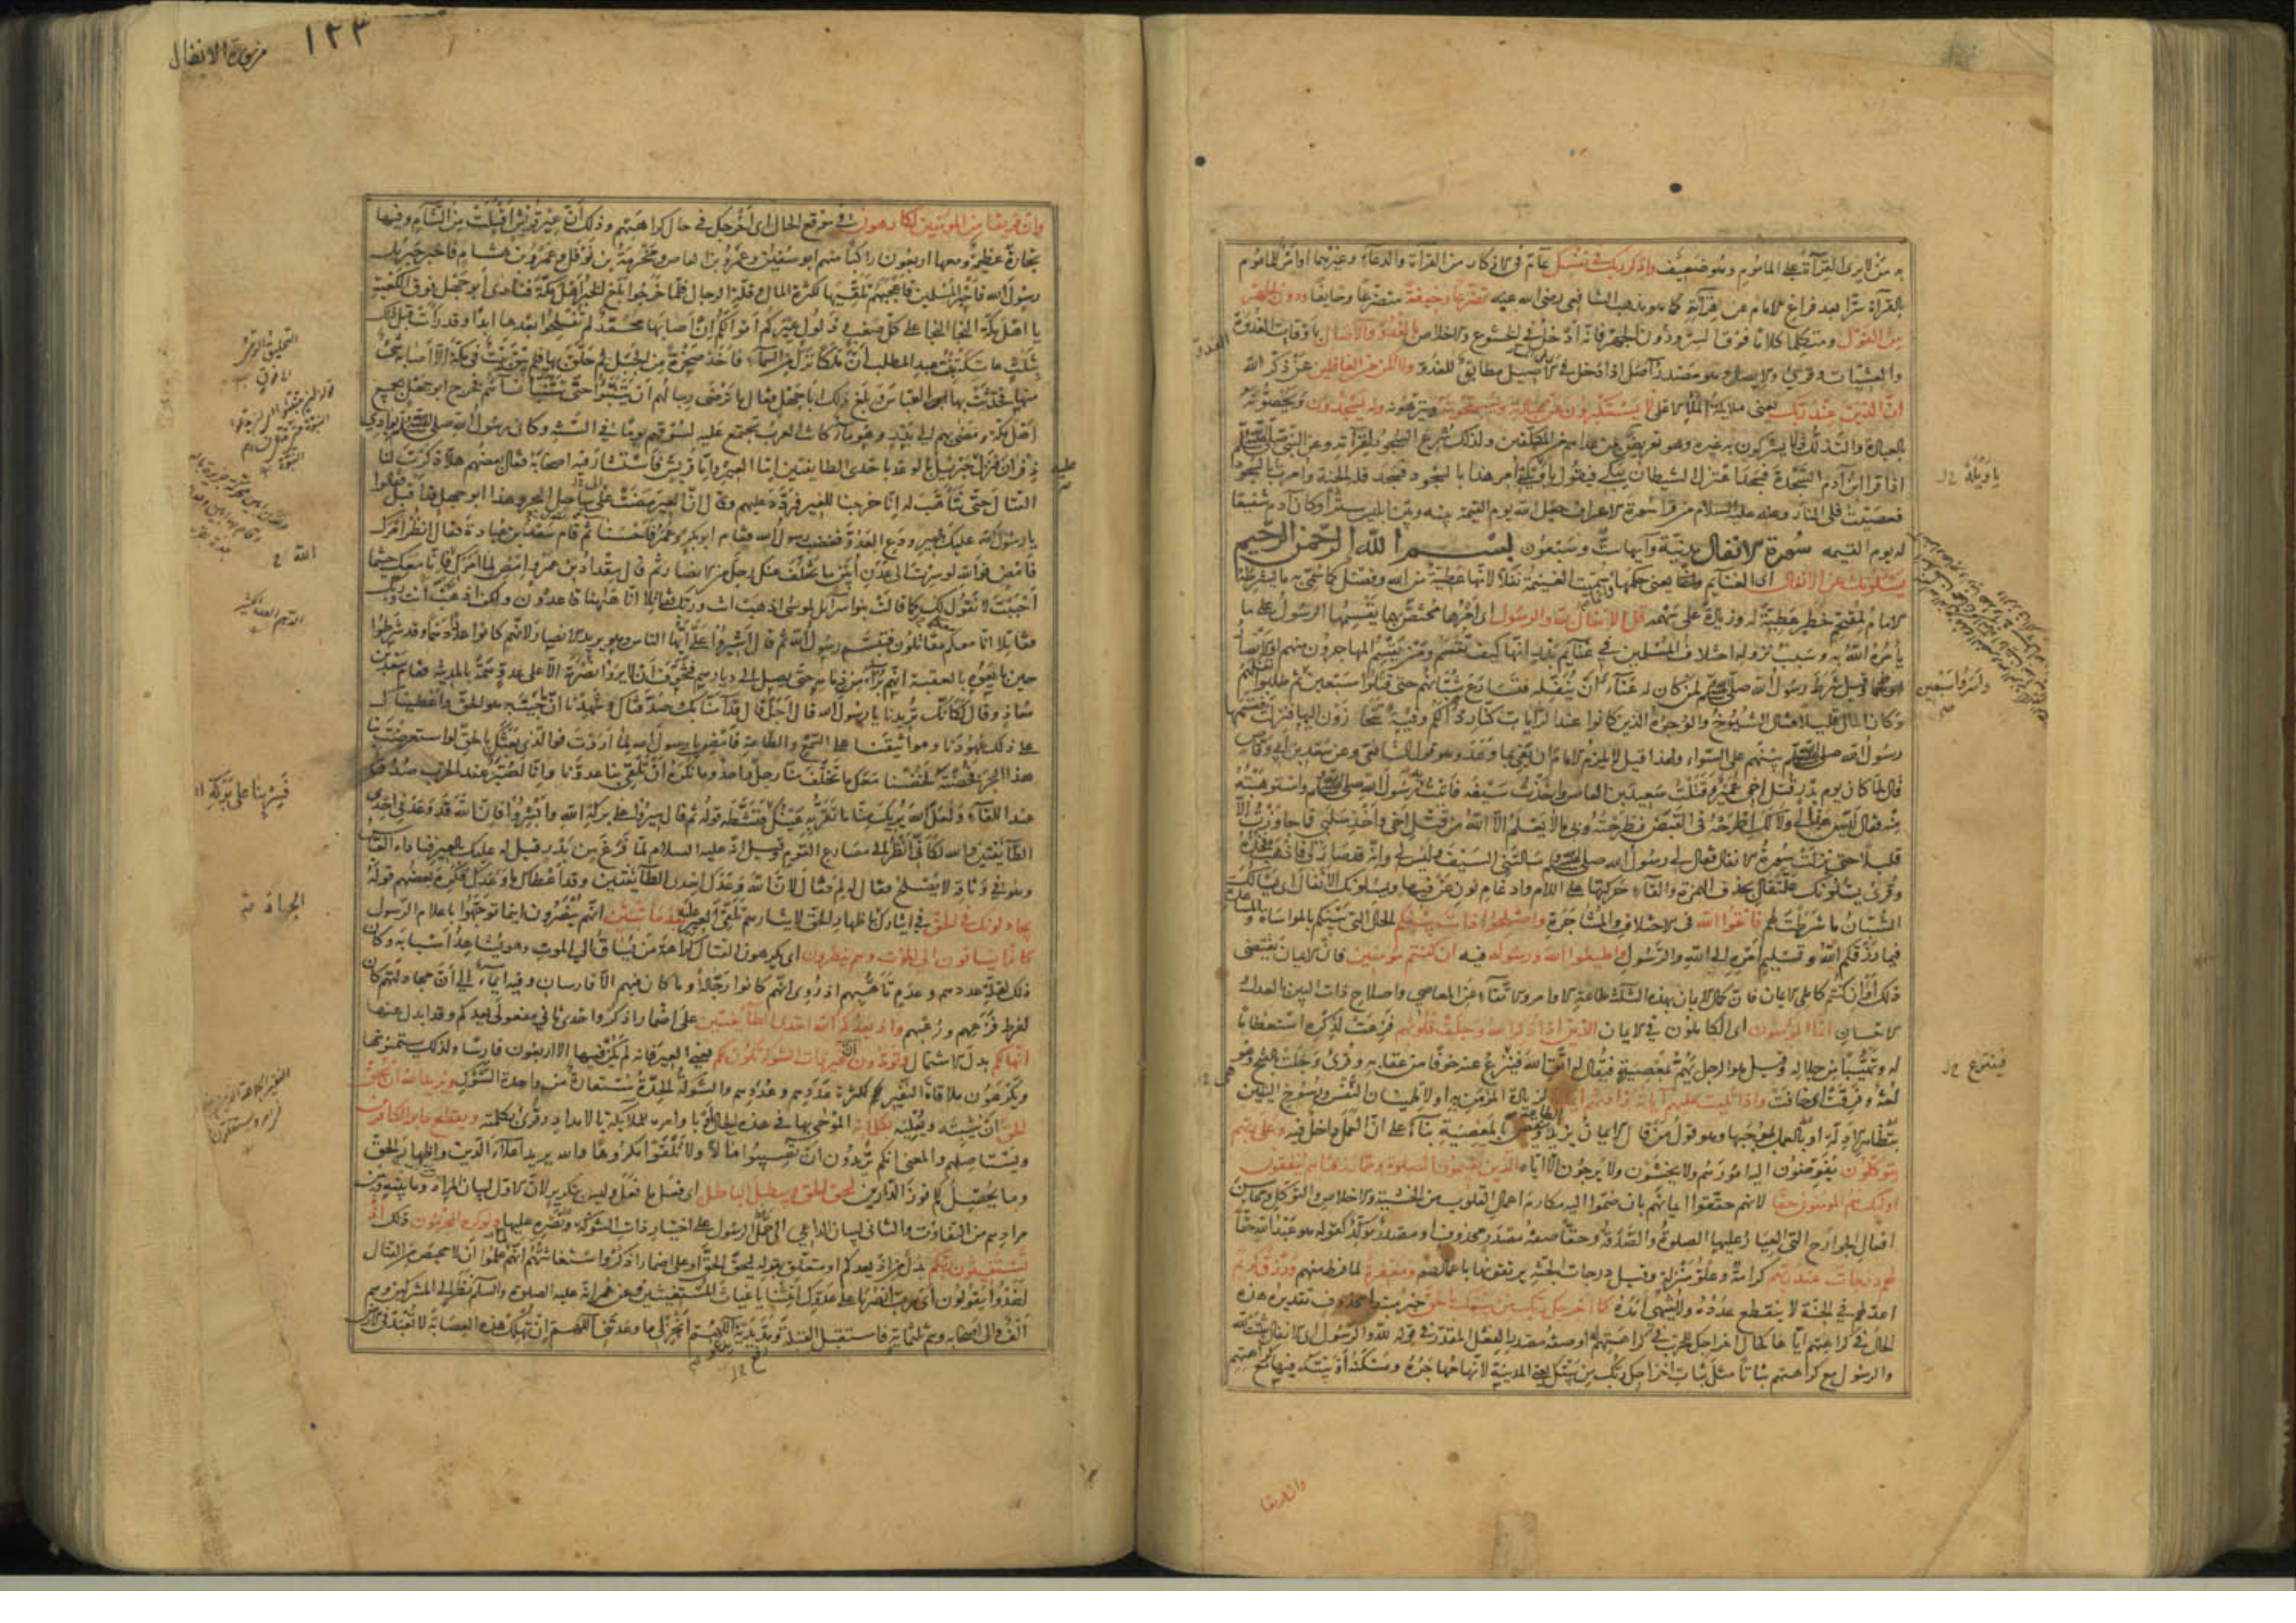 به من لا يرى القرآة على الماموم وهو ضعيف واذكر ربك في نفسك عام في الاذكار من القرآة والدعاء وغيرهما او امر للماموم
بالقرآة سرا بعد فراغ الامام عن قرآته كما هو مذهب الشافعي رضي الله عنه تضرعا وخيفة متضرعا وخايفا ودون الجهر
من القول ومتكلما كلاما فوق السر ودون الجهر فانه ادخل في الخشوع والاخلاص بالغدو والآصال باوقات الغدو
والعشيات وقرئ والايصال وهو مصدر آصل اذا دخل في الاصيل مطابق للغدو ولا تكن من الغافلين عن ذكر الله
ان الذين عند ربك يعني ملايكة الملأ الاعلى لا يستكبرون عن عبادته ويسبحونه وينزهونه وله يسجدون ويخصونه
بالعبادة والتذلل لا يشركون به غيره وهو تعريض بمن عداهم من المكلفين ولذلك شرع السجود لقرآته وعن النبي صلى الله عليه وسلم
اذا قرأ ابن آدم السجدة فسجد اعتزل الشيطان يبكي فيقول يا ويله امر هذا بالسجود فسجد فله الجنة وامرت بالسجود
فعصيت فلي النار وعنه عليه السلام من قرأ سورة الاعراف جعل الله يوم القيمة بينه وبين ابليس سترا وكان آدم شفيعا
له يوم القيمه سورة الانفال مدنية وآيها ست وسبعون بسم الله الرحمن الرحيم
يسئلونك عن الانفال اى الغنايم يعني حكمها وانما سميت الغنيمة نفلا لانها عطية من الله وفضل كما سمي به ما يشرطه
الامام لمقتحم خطر عطية له وزيادة على سهمه قل الانفال لله والرسول اى امرها مختص بهما يقسمها الرسول على ما
يأمره الله به وسبب نزوله اختلاف المسلمين في غنايم بدر انها كيف تقسم ومن يقسم المهاجرون منهم او الانصار
وقيل شرط رسول الله صلى الله عليه وسلم لمن كان له غناء ان ينفله فتسارع شبانهم حتى قتلوا سبعين ثم طلبوا نفلهم
وكان المال قليلا فقال الشيوخ والوجوه الذين كانوا عند الرايات كنا ردءا لكم وفئة تنحازون اليها فنزلت فقسمها
رسول الله صلى الله عليه وسلم بينهم على السواء ولهذا قيل لا يلزم الامام ان يفي بما وعد وهو قول الشافعي وعن سعد بن ابي وقاص
قال لما كان يوم بدر قتل اخي عمير وقتلت سعيد بن العاص واخذت سيفه فاتيت به رسول الله صلى الله عليه وسلم واستوهبته
منه فقال ليس هذا لي ولا لك اطرحه في القبض فطرحته وبي ما لا يعلم الا الله من قتل اخي واخذ سلبي فما جاوزت الا
قليلا حتى نزلت سورة الانفال فقال لي رسول الله صلى الله عليه وسلم سالتني السيف وليس لي وانه قد صار لي فاذهب فخذه
وقرئ يسئلونك علنفال بحذف الهمزة والقاء حركتها على اللام وادغام نون عن فيها ويسئلونك الانفال اى يسالك
الشبان ما شرطت لهم فاتقوا الله في الاختلاف والمشاجرة واصلحوا ذات بينكم الحال التي بينكم بالمواساة والمساعدة
فيما رزقكم الله وتسليم امره الى الله والرسول واطيعوا الله ورسوله فيه ان كنتم مومنين فان الايمان يقتضي
ذلك او ان كنتم كاملي الايمان فان كمال الايمان بهذه الثلثة طاعة الاوامر والاتقاء عن المعاصي واصلاح ذات البين بالعدل
والاحسان انما المؤمنون اى الكاملون في الايمان الذين اذا ذكر الله وجلت قلوبهم فزعت لذكره استعظاما
له وتهيبا من جلاله وقيل هو الرجل يهم بمعصية فيقال له اتق الله فينزع عنه خوفا من عقابه وقرئ وجلت بالفتح وهي
لغة وفرقت اى خافت واذا تليت عليهم آياته زادتهم ايمانا لزيادة المؤمن به او لاطمينان النفس ورسوخ اليقين
بتظاهر الادلة او بالعمل بموجبها وهو قول من قال الايمان يزيد بالطاعة وينقص بالمعصية بناء على ان العمل داخل فيه وعلى ربهم
يتوكلون يفوضون اليه امورهم ولا يخشون ولا يرجون الا اياه الذين يقيمون الصلوة ومما رزقناهم ينفقون
اولئك هم المومنون حقا لانهم حققوا ايمانهم بان ضموا اليه مكارم اعمال القلوب من الخشية والاخلاص والتوكل ومحاسن
افعال الجوارح التي العيار عليها الصلوة والصدقة وحقا صفة مصدر محذوف او مصدر مؤكد كقوله هو عبد الله حقا
لهم درجات عند ربهم كرامة وعلو منزلة وقيل درجات الجنة يرتقونها باعمالهم ومغفرة لما فرط منهم ورزق كريم
اعد لهم في الجنة لا ينقطع عدده ولا ينتهي امده كما اخرجك ربك من بيتك بالحق خبر مبتدا محذوف تقديره هذه
الحال في كراهتهم اياها كحال اخراجك للحرب في كراهتهم له او صفة مصدر الفعل المقدر في قوله لله والرسول اى الانفال ثبتت لله
والرسول مع كراهتهم ثباتا مثل ثبات اخراجك ربك من بيتك يعني المدينة لانها مهاجره ومسكنه او بيته فيها مع كراهتهم
يا ويله
فينزع
وان فريقا
من سورة الانفال ١٢٣
وان فريقا من المؤمنين لكارهون في موقع الحال اى اخرجك في حال كراهتهم وذلك ان عير قريش اقبلت من الشام وفيها
تجارة عظيمة ومعها اربعون راكبا منهم ابو سفين وعمرو بن العاص ومخرمة بن نوفل وعمرو بن هشام فاخبر جبريل
رسول الله فاخبر المسلمين فاعجبهم تلقيها لكثرة المال وقلة الرجال فلما خرجوا بلغ الخبر اهل مكة فنادى ابو جهل فوق الكعبة
يا اهل مكة النجا النجا على كل صعب وذلول عيركم اموالكم ان اصابها محمد لم تفلحوا بعدها ابدا وقد رأت قبل ذلك
بثلث عاتكة بنت عبد المطلب ان ملكا نزل من السماء فاخذ صخرة من الجبل ثم حلق بها فلم يبق بيت في مكة الا اصابه شئ
منها فحدثت بها العباس وبلغ ذلك ابا جهل فقال ما ترضى رجالهم ان يتنبؤا حتى تتنبأ نساؤهم فخرج ابو جهل بجميع
اهل مكة ومضى بهم الى بدر وهو ماء كانت العرب تجتمع عليه لسوقهم يوما في السنة وكان رسول الله صلى الله عليه وسلم بوادي
ذفران فنزل جبريل بالوعد باحدى الطايفتين اما العير واما قريش فاستشار فيه اصحابه فقال بعضهم هلا ذكرت لنا
القتال حتى نتأهب له انا خرجنا للعير فردد عليهم وقال ان العير مضت على ساحل البحر وهذا ابو جهل قد اقبل فقالوا
يا رسول الله عليك بالعير ودع العدو فغضب رسول الله فقام ابو بكر وعمر فاحسنا ثم قام سعد بن عبادة فقال انظر امرك
فامض فوالله لو سرت الى عدن ابين ما تخلف عنك رجل من الانصار ثم قال مقداد بن عمرو امض لما امرك الله فانا معك حيثما
احببت لا نقول لك كما قالت بنو اسرآئل لموسى اذهب انت وربك فقاتلا انا هاهنا قاعدون ولكن اذهب انت وربك
فقاتلا انا معكم مقاتلون فتبسم رسول الله ثم قال اشيروا على ايها الناس وهو يريد الانصار لانهم كانوا عددهم وقد شرطوا
حين بايعوه بالعقبة انهم برآء من ذمامه حتى يصل الى ديارهم فتخوف ان لا يروا نصرته الا على عدو دهمه بالمدينة فقام سعد بن
معاذ وقال لكأنك تريدنا يا رسول الله قال اجل قال قد آمنا بك وصدقناك وشهدنا ان ما جئت به هو الحق واعطيناك
على ذلك عهودنا ومواثيقنا على السمع والطاعة فامض يا رسول الله لما اردت فوالذي بعثك بالحق لو استعرضت بنا
هذا البحر فخضته لخضناه معك ما تخلف منا رجل واحد وما نكره ان تلقى بنا عدونا وانا لصبر عند الحرب صدق
عند اللقاء ولعل الله يريك منا ما تقر به عينك فنشطه قوله ثم قال سيروا على بركة الله وابشروا فان الله قد وعدني احدى
الطايفتين والله لكأني انظر الى مصارع القوم وقيل انه عليه السلام لما فرغ من بدر قيل له عليك بالعير فناداه العباس
وهو في وثاقه لا يصلح فقال له لم فقال لان الله وعدك احدى الطايفتين وقد اعطاك ما وعدك فكره بعضهم قوله
يجادلونك في الحق في ايثارك باظهار الحق لايثارهم تلقي العير عليه بعد ما تبين انهم ينصرون اينما توجهوا باعلام الرسول
كانما يساقون الى الموت وهم ينظرون اى يكرهون القتال كراهة من يساق الى الموت وهو يشاهد اسبابه وكان
ذلك لقلة عددهم وعدم تاهبهم اذ روى انهم كانوا رجالة وما كان فيهم الا فارسان وفيه ايماء الى ان مجادلتهم كان
لفرط فزعهم ورعبهم واذ يعدكم الله احدى الطايفتين على اضمار اذكر واحدى ثاني مفعولي يعدكم وقد ابدل عنها
انها لكم بدل الاشتمال وتودون ان غير ذات الشوكة تكون لكم يعني العير فانه لم يكن فيها الا اربعون فارسا ولذلك يتمنونها
ويكرهون ملاقاة النفير لكثرة عددهم وعددهم والشوكة الحدة مستعارة من واحدة الشوك ويريد الله ان يحق
الحق ان يثبته ويعليه بكلماته الموحى بها في هذه الحال او باوامره للملايكة بالامداد وقرئ بكلمته ويقطع دابر الكافرين
ويستاصلهم والمعنى انكم تريدون ان تصيبوا مالا ولا تلقوا مكروها والله يريد اعلاء الدين واظهار الحق
وما يحصل لكم فوز الدارين ليحق الحق ويبطل الباطل اى فعل ما فعل وليس بتكرير لان الاول لبيان المراد وما بينه وبين
مرادهم من التفاوت والثاني لبيان الداعي الى حمل الرسول على اختيار ذات الشوكة ونصره عليها ولو كره المجرمون ذلك اذ
تستغيثون ربكم بدل من اذ يعدكم او متعلق بقوله ليحق الحق او على اضمار اذكر واستغاثتهم انهم علموا ان لا محيص من القتال
اخذوا يقولون اى رب انصرنا على عدوك اغثنا يا غياث المستغيثين وعن عمر انه عليه الصلوة والسلم نظر الى المشركين وهم
الف والى اصحابه وهم ثلثماية فاستقبل القبلة ومد يديه اللهم انجز لي ما وعدتني اللهم ان تهلك هذه العصابة لا تعبد في الارض
فسر بنا على بركة الله